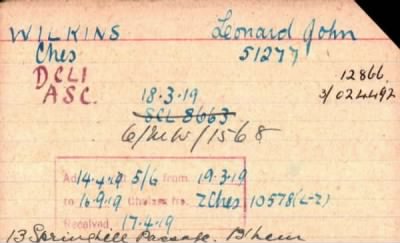 WILKINS Leonard John
Ches 51277
DCLI 12866
ASC. 18.3.19 S/024492
SCL 8663
6/MW/1568
Ad 14.4.19 5/6 from 19.3.19
to 16.9.19 Chelsea No. 7 Ches 10578 (L-Z)
Received 17.4.19
13 Springhill Passage. B'ham